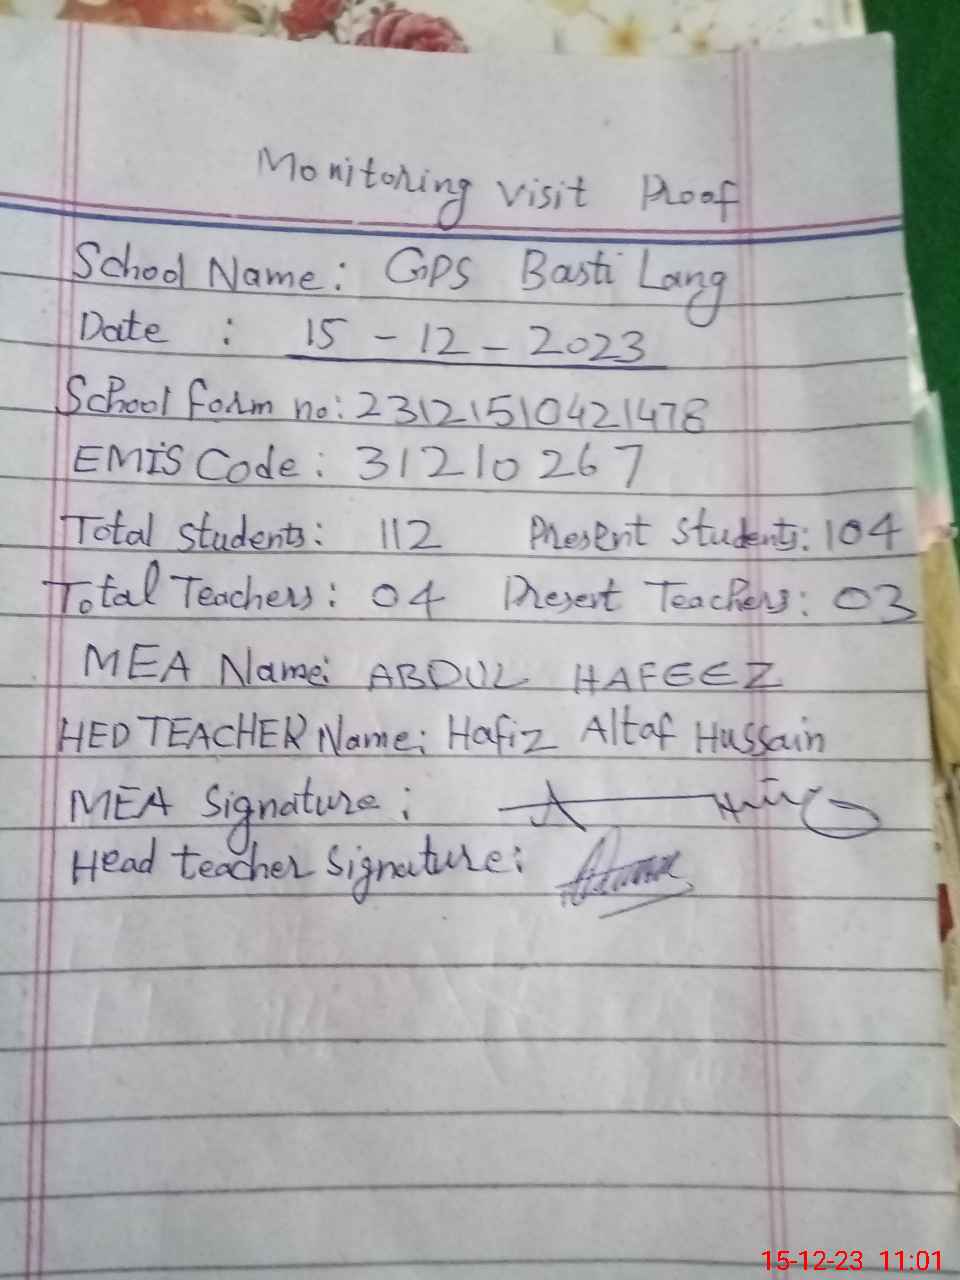 Monitoring visit Proof
School Name: GPS Basti Lang
Date : 15 - 12 - 2023
School form no: 23121510421478
EMIS Code: 31210267
Total students: 112 Present students: 104
Total Teachers: 04 Present Teachers: 03
MEA Name: ABDUL HAFEEZ
HED TEACHER Name: Hafiz Altaf Hussain
MEA Signature:
Head teacher signature:
15-12-23 11:01